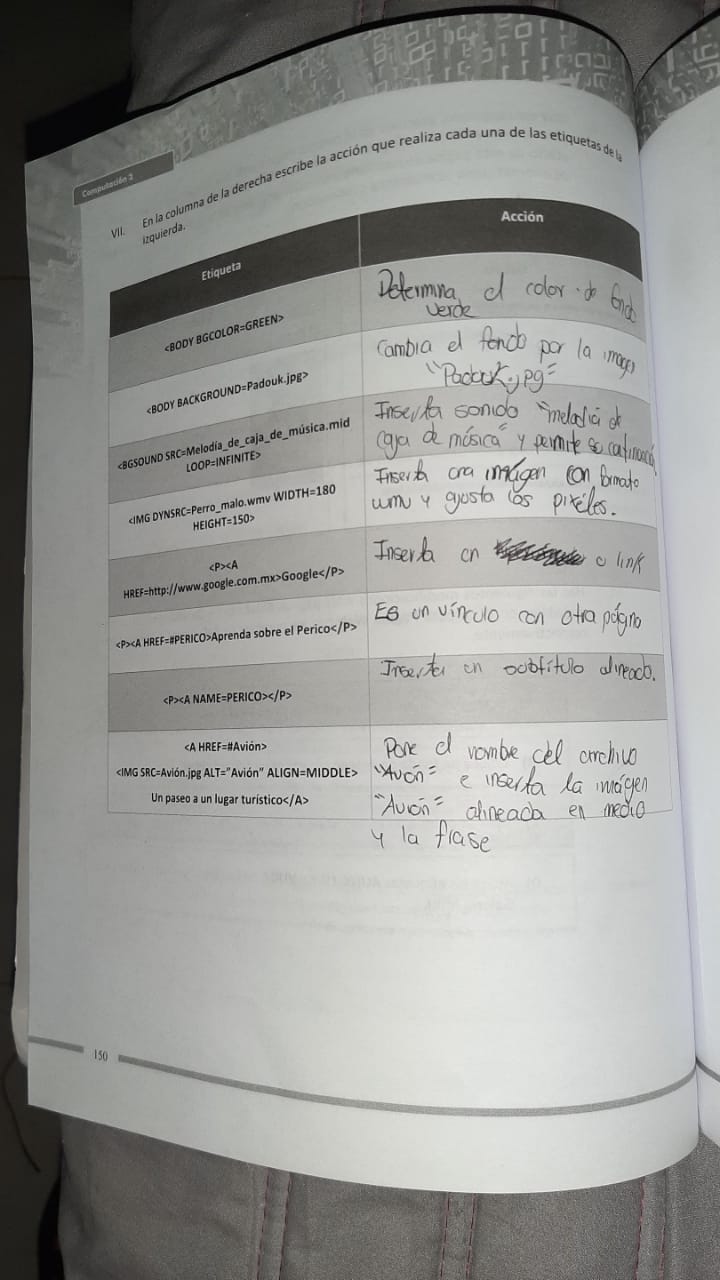 Computación 2
VII. En la columna de la derecha escribe la acción que realiza cada una de las etiquetas de la
izquierda.
Etiqueta
Acción
<BODY BGCOLOR=GREEN>
Determina el color de fondo
verde
<BODY BACKGROUND=Padouk.jpg>
Cambia el fondo por la imagen
"Padouk.jpg"
<BGSOUND SRC=Melodía_de_caja_de_música.mid
LOOP=INFINITE>
Inserta sonido "melodía de
caja de música" y permite su continuación
<IMG DYNSRC=Perro_malo.wmv WIDTH=180
HEIGHT=150>
Inserta una imágen con formato
wmv y ajusta los pixéles.
<P><A
HREF=http://www.google.com.mx>Google</P>
Inserta un o link
<P><A HREF=#PERICO>Aprenda sobre el Perico</P>
Es un vínculo con otra página
<P><A NAME=PERICO></P>
Inserta un subtítulo alineado.
<A HREF=#Avión>
<IMG SRC=Avión.jpg ALT="Avión" ALIGN=MIDDLE>
Un paseo a un lugar turístico</A>
Pone el nombre del archivo
"Avión" e inserta la imágen
"Avión" alineada en medio
y la frase
150